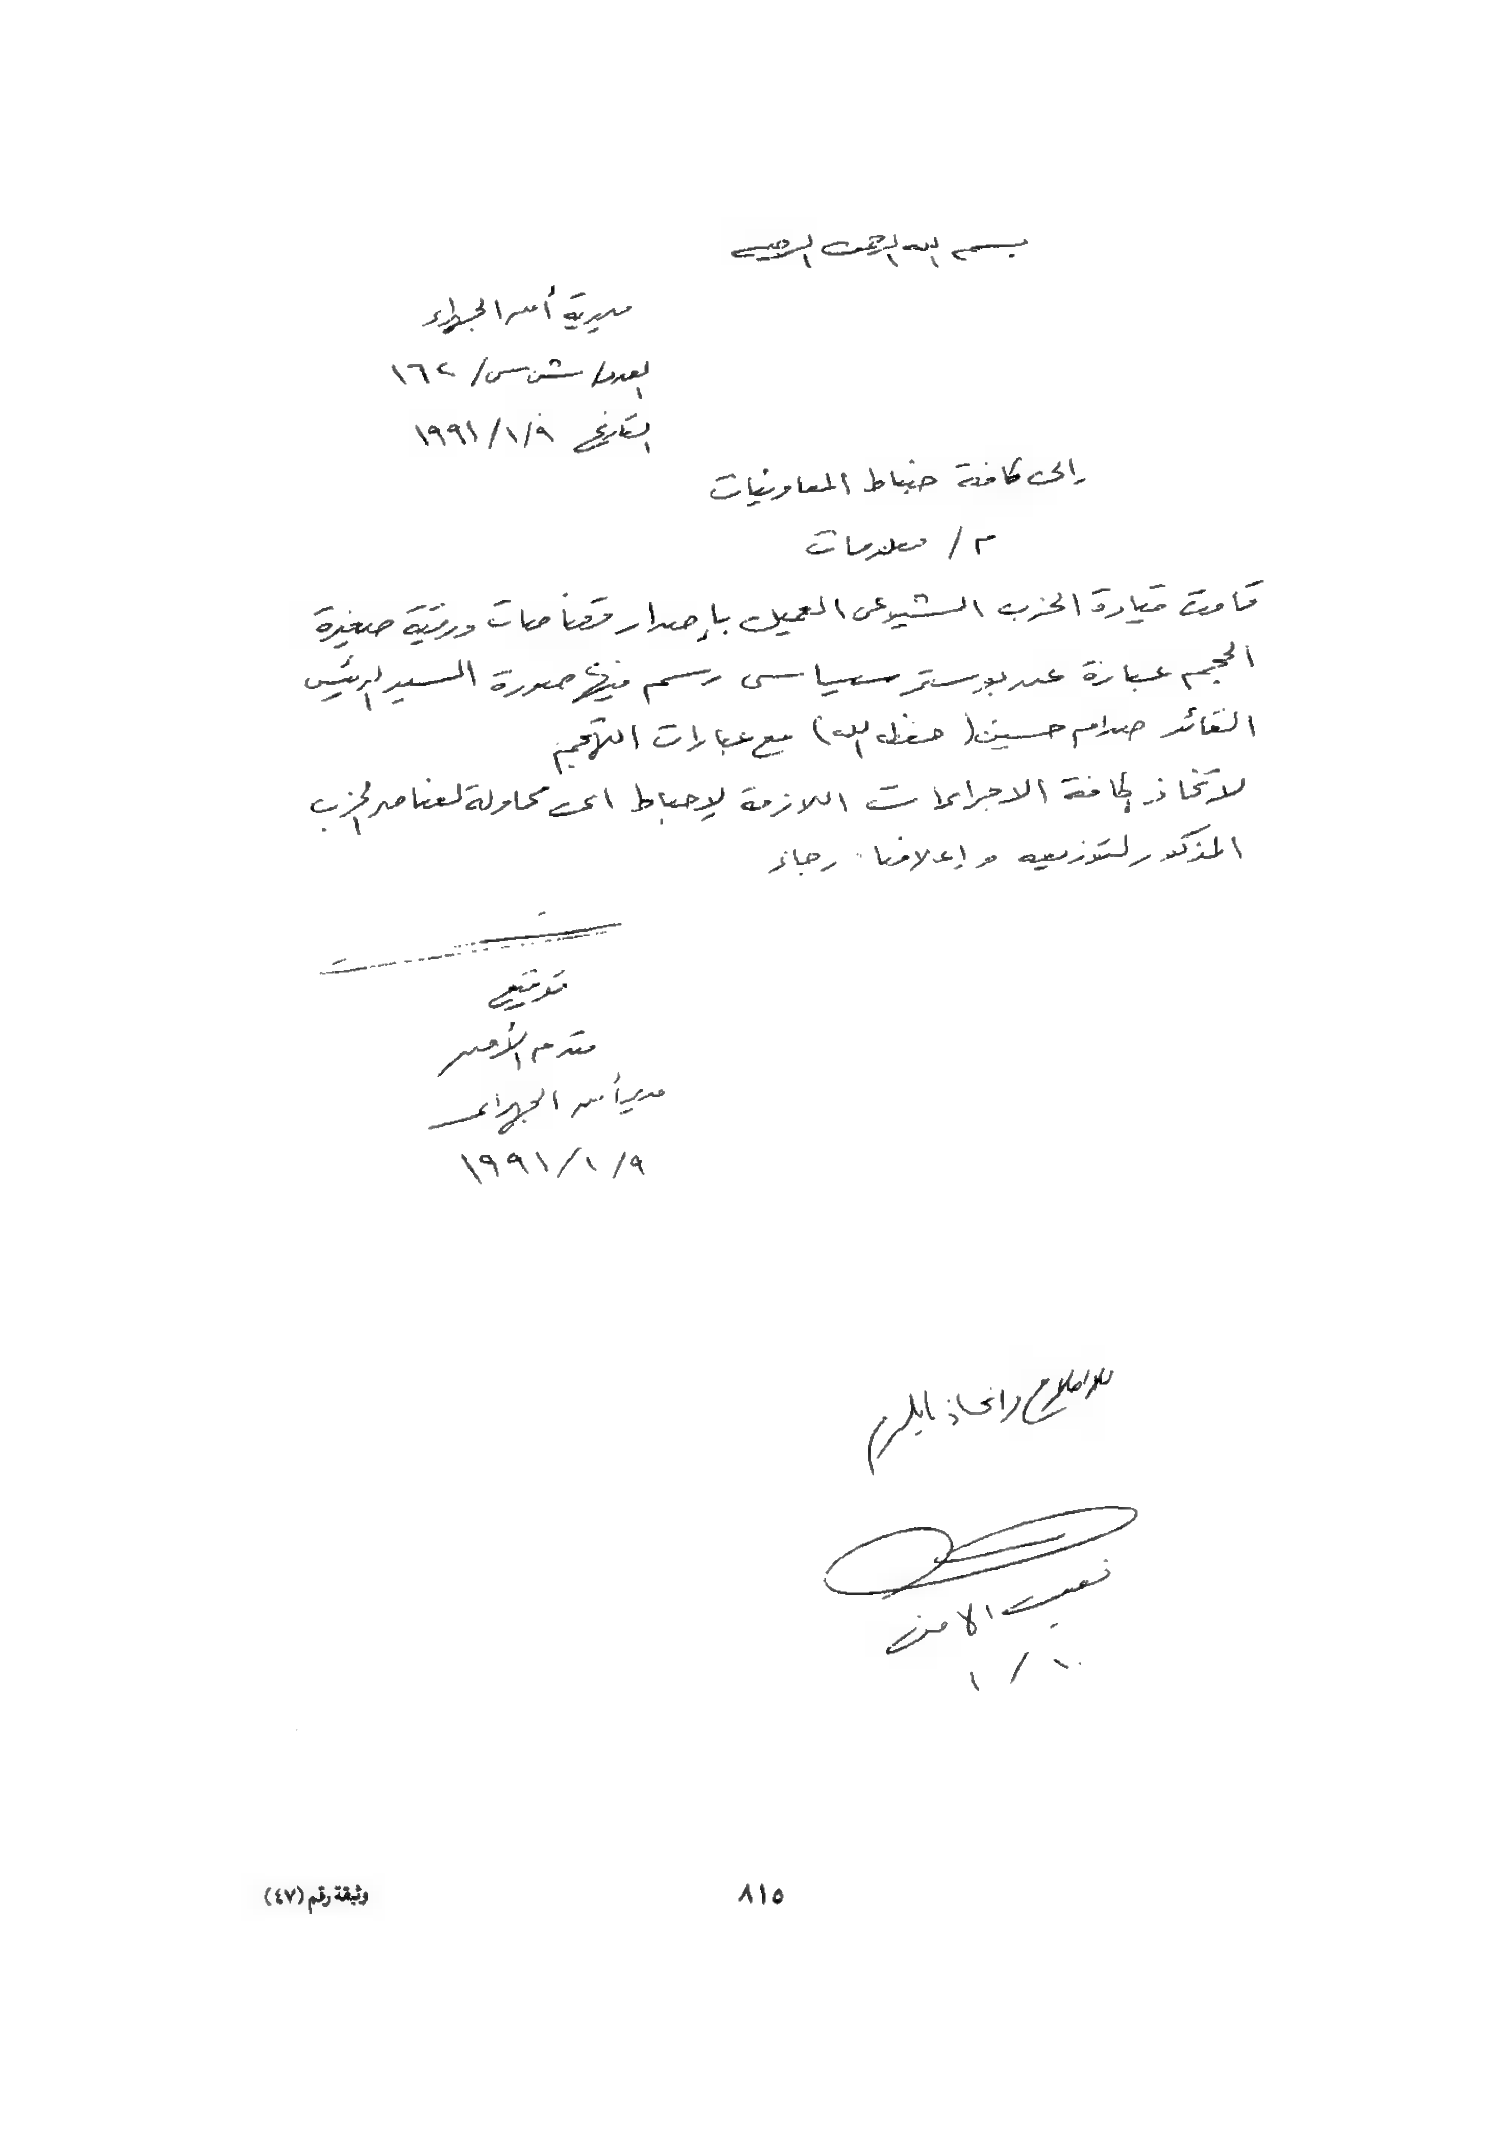 بسم الله الرحمن الرحيم
مديرية أمن الجهراء
العدد/ ش س/ ١٦٢
التاريخ ١٩٩١/١/٩
إلى كافة ضباط المعاونيات
م / معلومات
قامت قيادة الحزب الشيوعي العميل بإصدار قصاصات ورقية صغيرة
الحجم عبارة عن بوستر سياسي رسم فيها صورة السيد الرئيس
القائد صدام حسين (حفظه الله) مع عبارات التهجم
لاتخاذ كافة الاجراءات اللازمة لإحباط اي محاولة لعناصر الحزب
المذكور لتوزيعه وإعلامنا . رجاء
توقيع
مقدم الأمن
مدير أمن الجهراء
١٩٩١/١/٩
للاطلاع واتخاذ مايلزم
الامن
١/١٠
وثيقة رقم (٤٧)
٨١٥